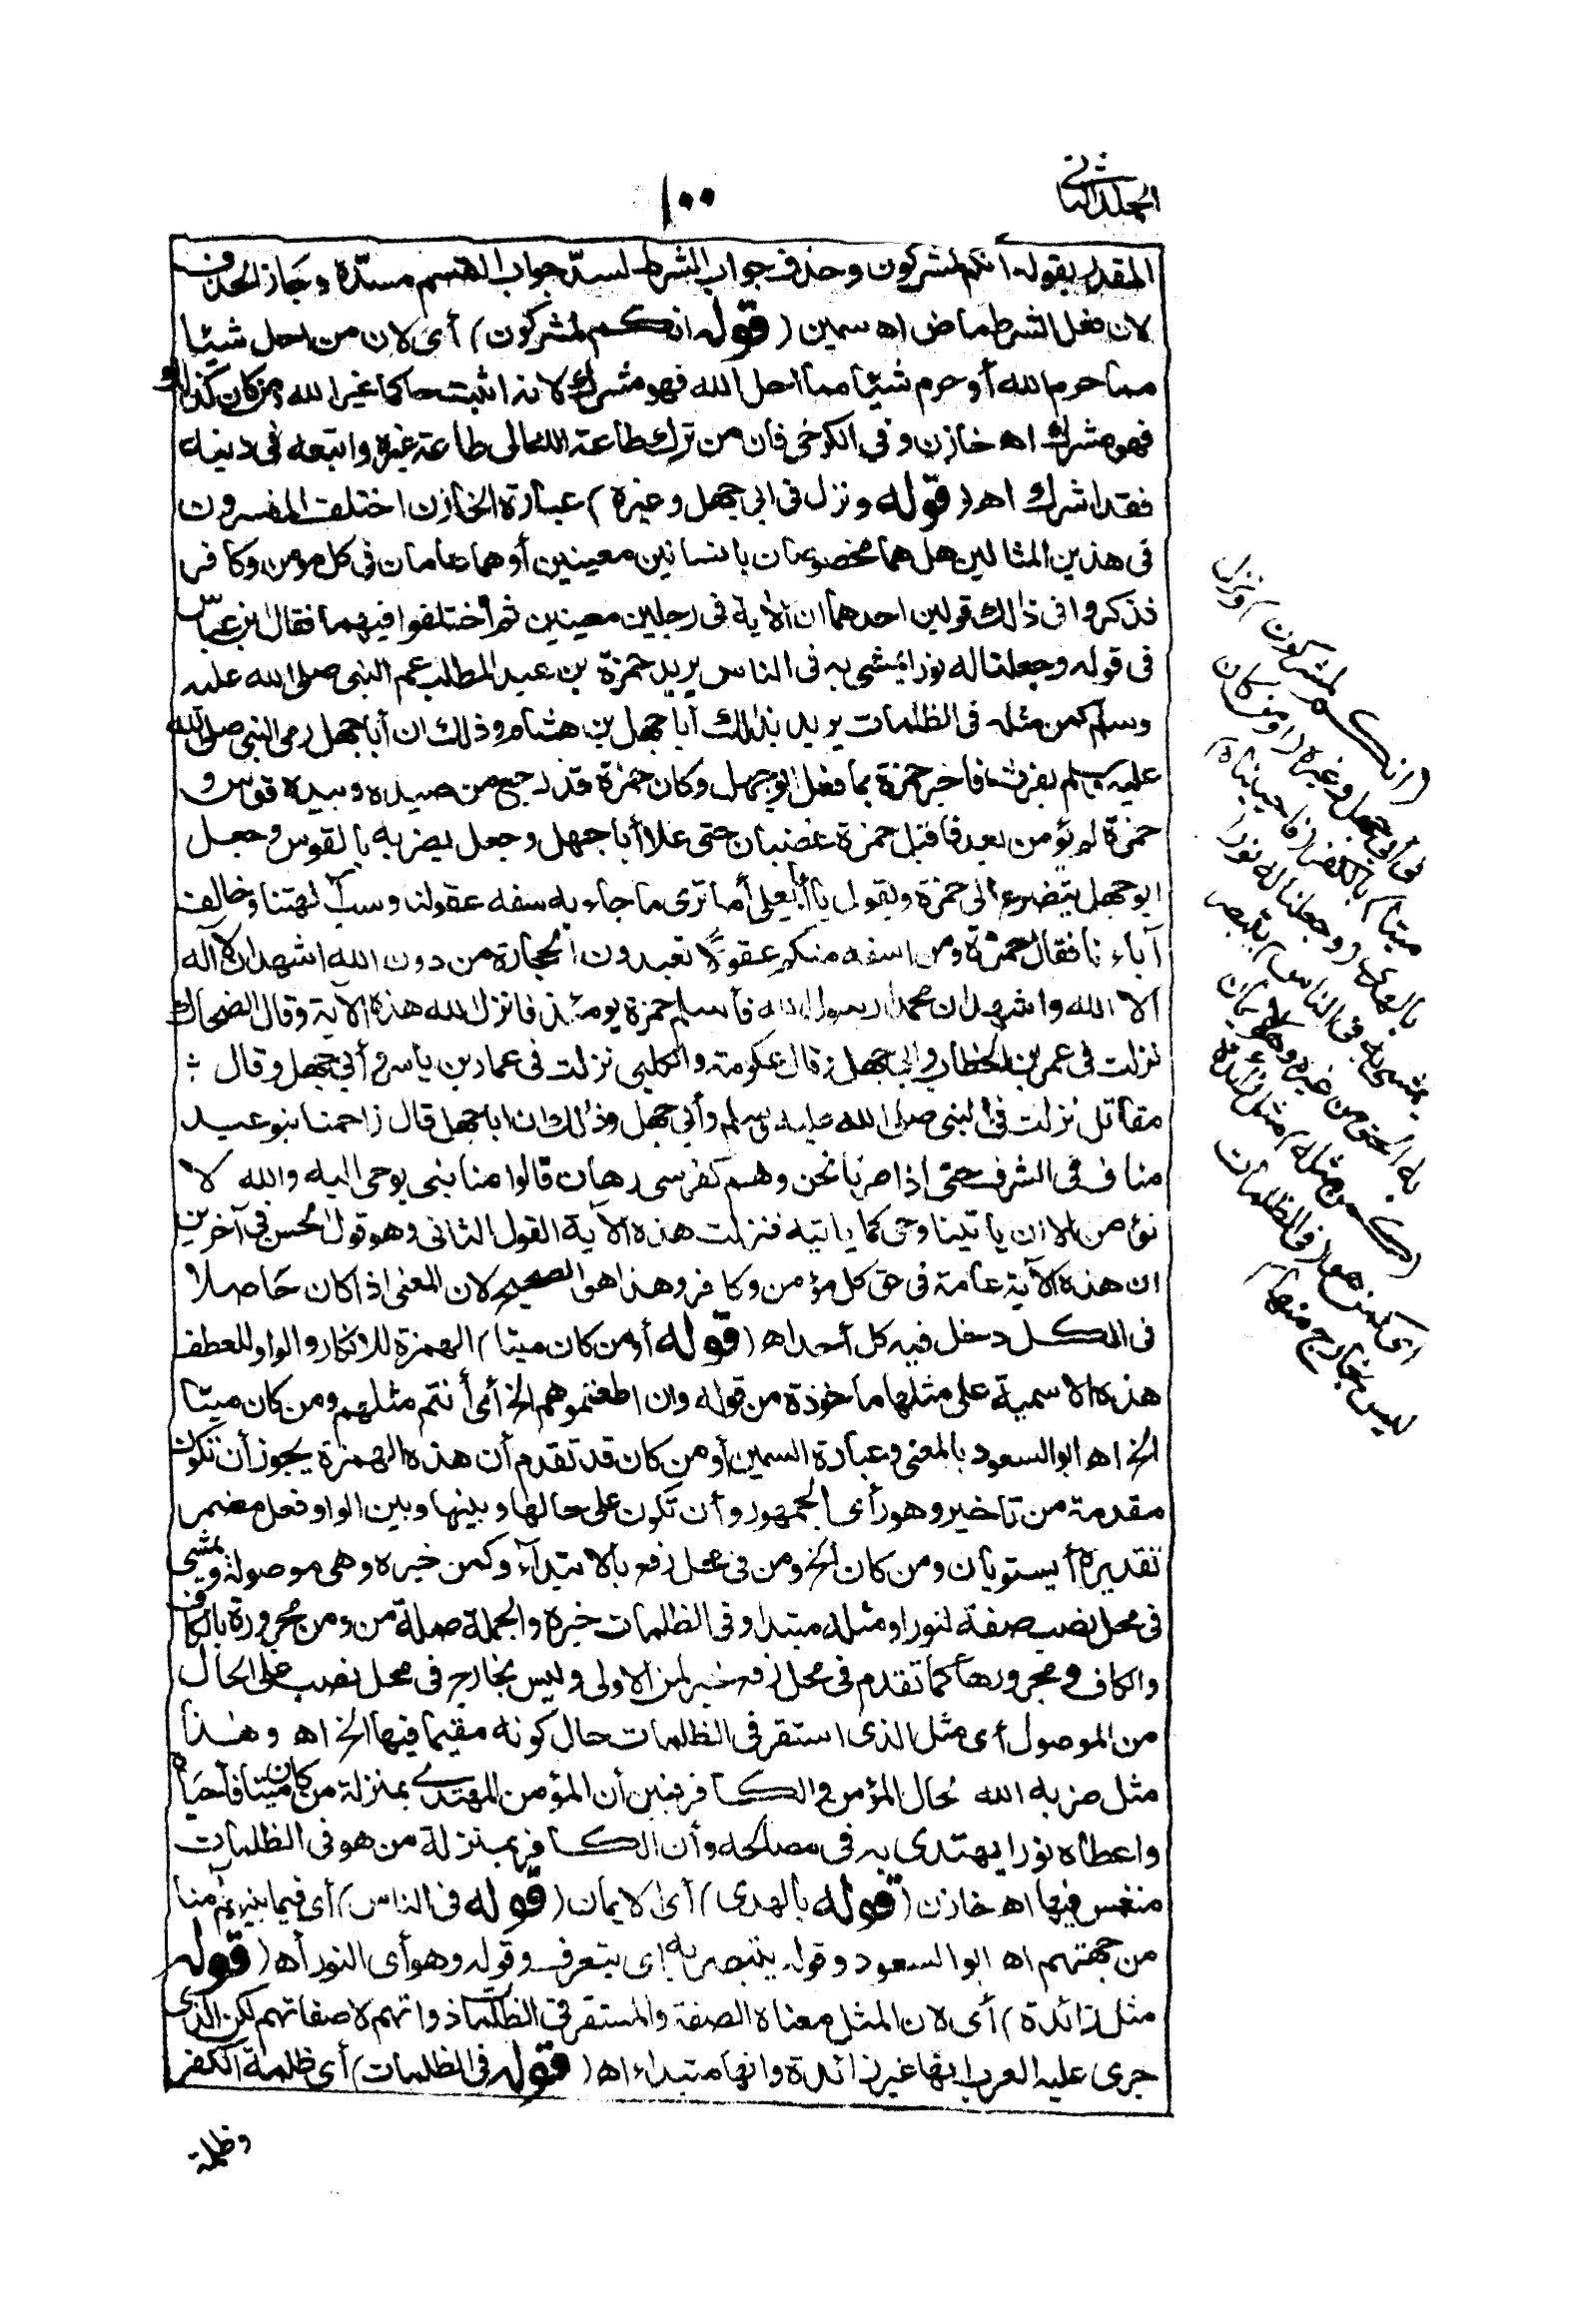 الجلد الثاني
١٠٠
المقدر بقوله أنكم لمشركون وحذف جواب الشرط لسد جواب القسم مسده وجاز الحذف
لان فعل الشرط ماض اه سمين (قوله انكم لمشركون) أى لان من احل شيئا
مما حرم الله أو حرم شيئا مما احل الله فهو مشرك لانه اثبت حاكما غير الله ومن كان كذلك
فهو مشرك اه خازن وفى الكرخى فان من ترك طاعة الله الى طاعة غيره واتبعه فى دينه
فقد اشرك اه (قوله ونزل فى ابى جهل وغيره) عبارة الخازن اختلف المفسرون
فى هذين المثالين هل هما مخصوصان بانسانين معينين أو هما عامان فى كل مومن وكافر
فذكروا فى ذلك قولين احدهما ان الاية فى رجلين معينين ثم اختلفوا فيهما فقال ابن عباس
فى قوله وجعلنا له نورا يمشى به فى الناس يريد حمزة بن عبد المطلب عم النبى صلى الله عليه
وسلم كمن مثله فى الظلمات يريد بذلك أبا جهل بن هشام وذلك ان أبا جهل رمى النبى صلى الله
عليه وسلم بفرث فاخبر حمزة بما فعل ابو جهل وكان حمزة قد رجع من صيده وبيده قوس و
حمزة لم يؤمن بعد فاقبل حمزة غضبان حتى علا أبا جهل وجعل يضربه بالقوس وجعل
ابو جهل يتضرع الى حمزة ويقول يا أبا يعلى أما ترى ما جاء به سفه عقولنا وسب آلهتنا وخالف
آباءنا فقال حمزة ومن اسفه منكم عقولا تعبدون الحجارة من دون الله اشهد ان لا آله
الا الله واشهد ان محمدا رسول الله فأسلم حمزة يومئذ فانزل الله هذه الآية وقال الضحاك
نزلت فى عمر بن الخطاب وابى جهل وقال عكرمة والكلبى نزلت فى عمار بن ياسر وأبى جهل وقال
مقاتل نزلت فى النبى صلى الله عليه وسلم وأبى جهل وذلك ان ابا جهل قال زاحمنا بنو عبد
مناف فى الشرف حتى اذا صرنا نحن وهم كفرسى رهان قالوا منا نبى يوحى اليه والله لا
نؤمن الا ان ياتينا وحى كما ياتيه فنزلت هذه الآية القول الثانى وهو قول الحسن فى آخرين
ان هذه الآية عامة فى حق كل مؤمن وكافر وهذا هو الصحيح لان المعنى اذا كان حاصلا
فى الكل دخل فيه كل أحد اه (قوله أومن كان ميتا) الهمزة للانكار والواو للعطف
هذه الاسمية على مثلها ماخوذة من قوله وان اطعتموهم الخ أى أنتم مثلهم ومن كان ميتا
الخ اه ابو السعود بالمعنى وعبارة السمين أومن كان قد تقدم أن هذه الهمزة يجوز أن تكون
مقدمة من تاخير وهو رأى الجمهور وأن تكون على حالها وبينها وبين الواو فعل مضمر
تقديره أيستويان ومن كان الخ ومن فى محل رفع بالابتدآء وكمن خبره وهى موصولة ويمشى
فى محل نصب صفة لنورا ومثله مبتدا وفى الظلمات خبره والجملة صلة من ومن مجرورة بالكاف
والكاف ومجرورها كما تقدم فى محل رفع خبر لمن الاولى وليس بخارج فى محل نصب على الحال
من الموصول أى مثل الذى استقر فى الظلمات حال كونه مقيما فيها الخ اه وهذا
مثل ضربه الله لحال المؤمن والكافر فبين أن المؤمن المهتدى بمنزلة من كان ميتا فأحياه
واعطاه نورا يهتدى به فى مصالحه وأن الكافر بمنزلة من هو فى الظلمات
منغمس فيها اه خازن (قوله بالهدى) أى الايمان (قوله فى الناس) أى فيما بينهم آمنا
من جهتهم اه ابو السعود وقوله يتبصر به اى يتعرف وقوله وهو أى النور أه (قوله
مثل زائدة) أى لان المثل معناه الصفة والمستقر فى الظلمات ذواتهم لا صفاتهم لكن الذى
جرى عليه المعرب انها غير زائدة وانها مبتداء اه (قوله فى الظلمات) أى ظلمة الكفر
وظلمة
(انكم لمشركون) ونزل
فى أبى جهل وغيره (أومن كان
ميتا) بالكفر (فاحييناه)
بالهدى (وجعلنا له نورا
يمشى به فى الناس) يتبصر
به الحق من غيره وهو الايمان
(كمن مثله) مثل زائدة
اى كمن هو (فى الظلمات
ليس بخارج منها)